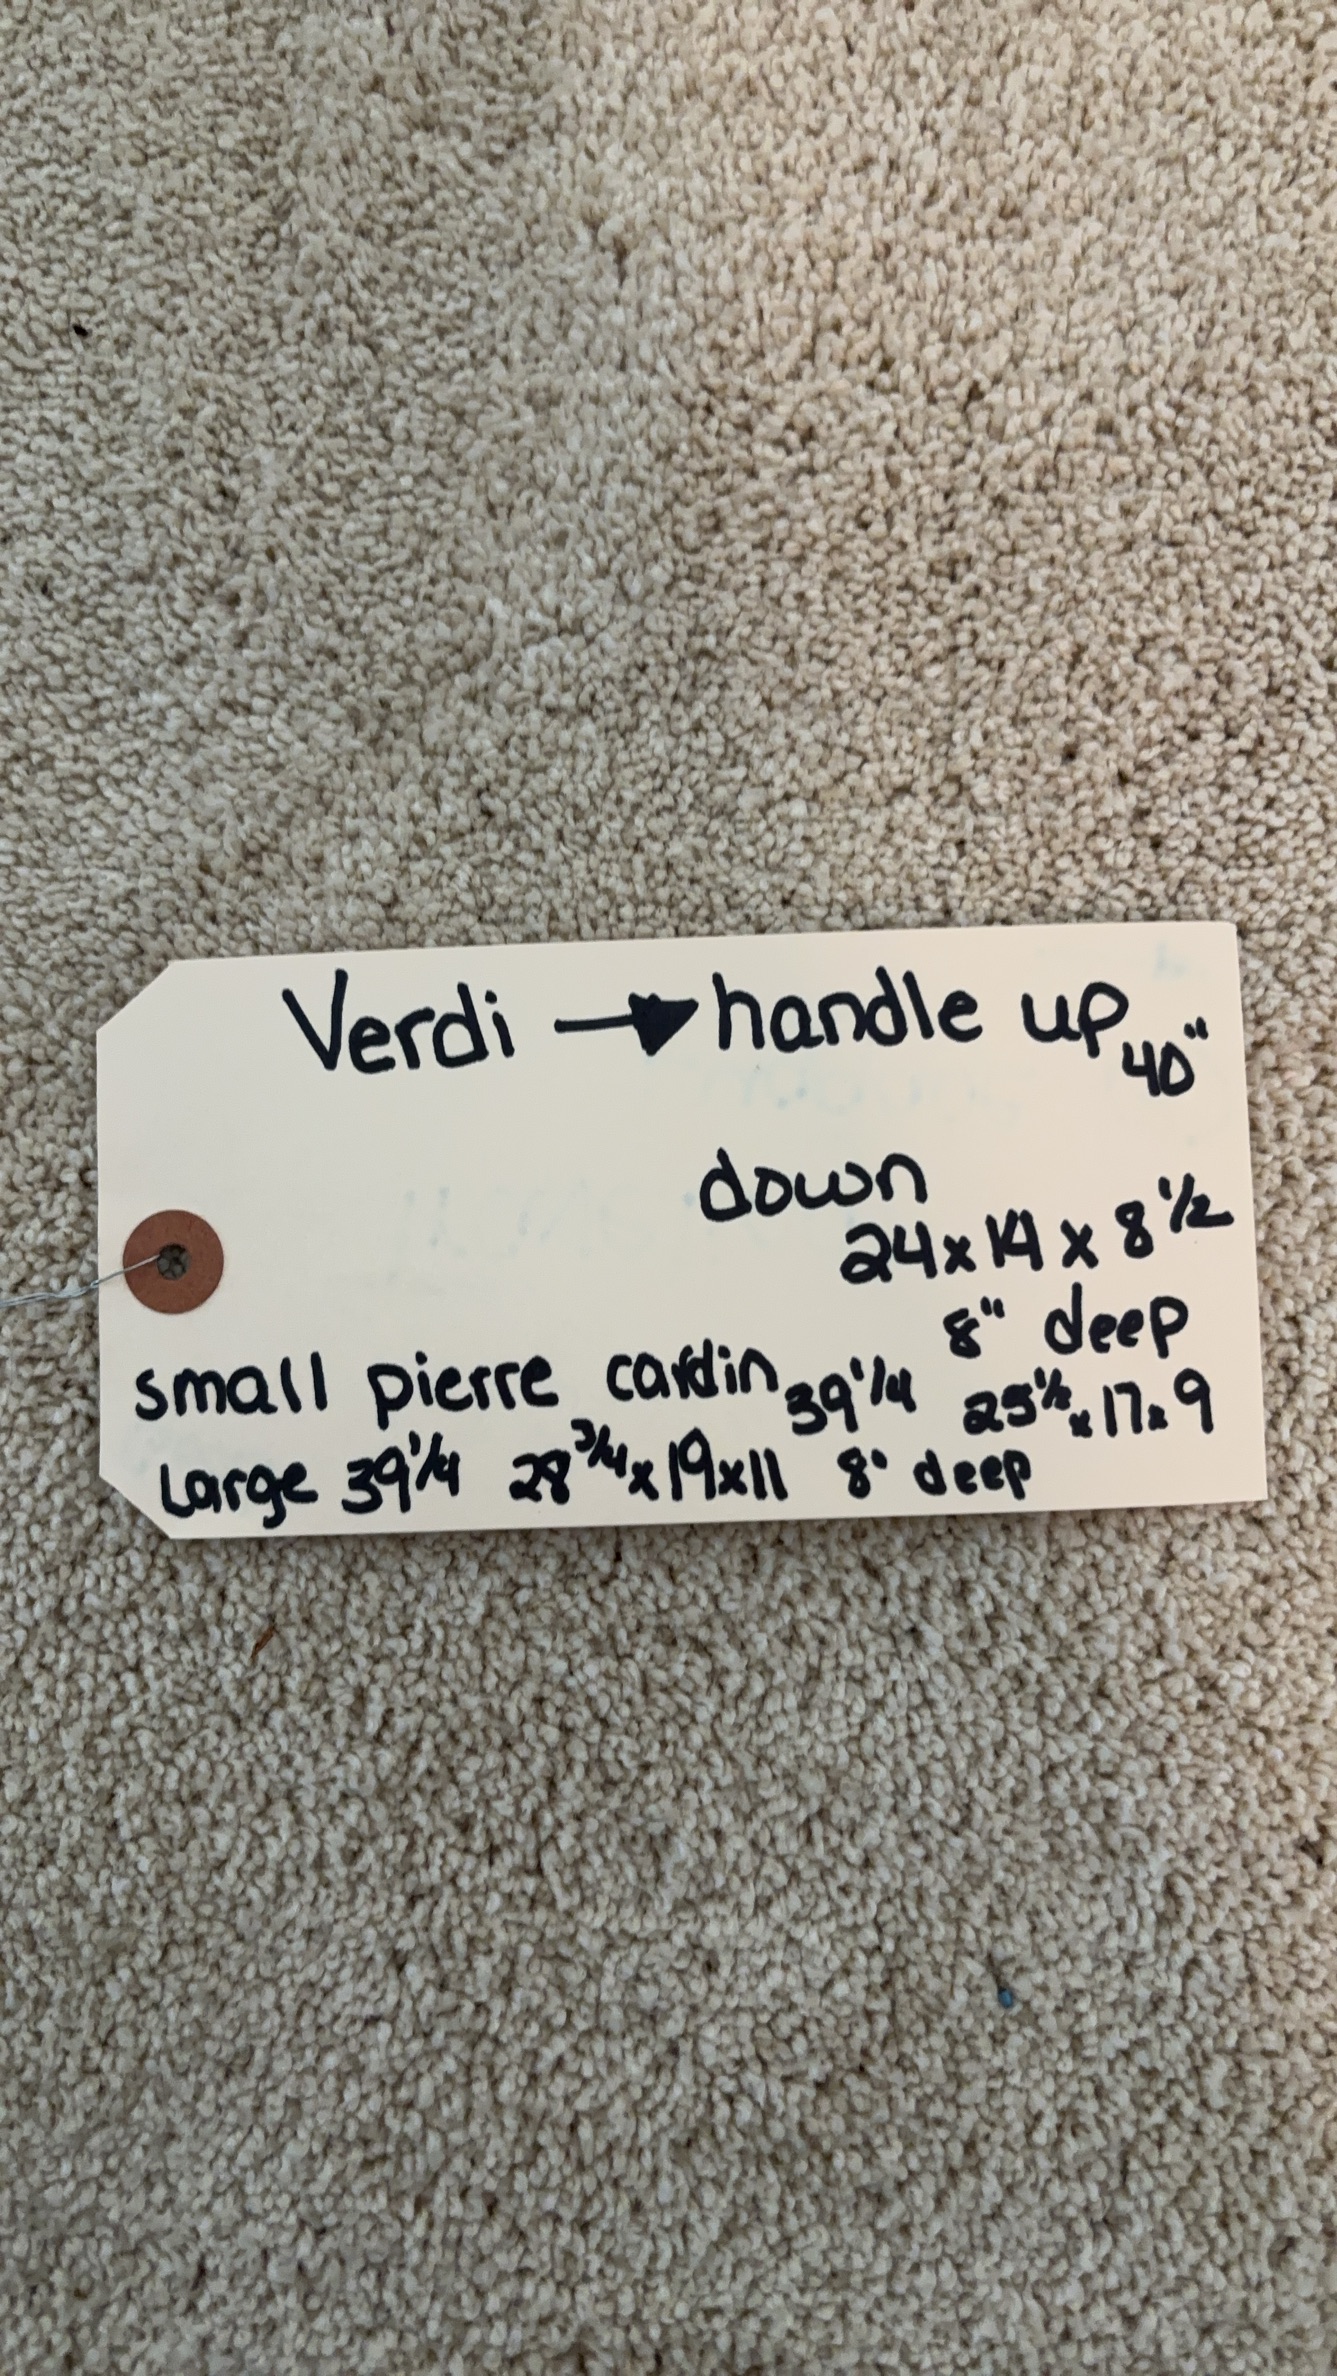 Verdi → handle up 40"
down
24 x 14 x 8 1/2
8" deep
small pierre cardin 39 1/4 25 1/2 x 17 x 9
Large 39 1/4 28 3/4 x 19 x 11 8" deep